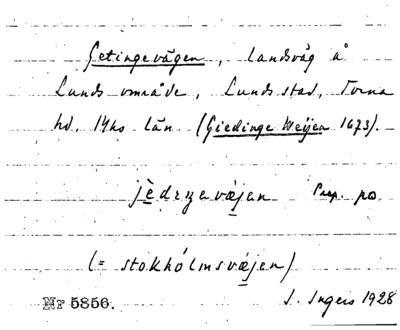 Getingevägen, landsväg å
Lunds område, Lunds stad, Torna
hd, Mhs län (Giedinge Weijen 1673).
jèdıŋavæ̣jan Prep. på
(= stokhólmsvæ̣jen)
Nr 5856. I. Ingers 1928